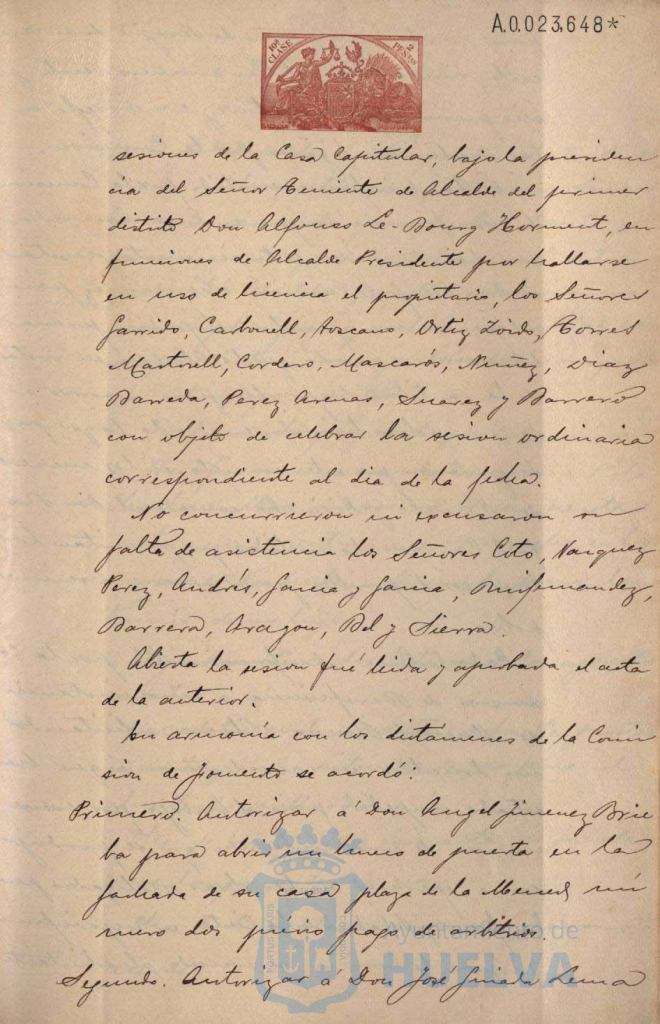 A.0.023,648*
10ª CLASE 2 PESTAS
sesiones de la Casa Capitular, bajo la presiden
cia del Señor Teniente de Alcalde del primer
distrito Don Alfonso Le-Bourg Horment, en
funciones de Alcalde Presidente por hallarse
en uso de licencia el propietario, los Señores
Garrido, Carbonell, Toscano, Ortiz, Torres
Martorell, Cordero, Mascarós, Nuñez, Diaz
Barreda, Perez Arenas, Suarez y Barrero
con objeto de celebrar la sesion ordinaria
correspondiente al dia de la fecha.
No concurrieron ni excusaron su
falta de asistencia los Señores Coto, Vazquez
Perez, Andrés, Garcia y Garcia,
Barrera, Aragon, Bel y Sierra.
Abierta la sesion fué leida y aprobada el acta
de la anterior.
En armonía con los dictámenes de la Comi
sion de fomento se acordó:
Primero. Autorizar á Don Angel Jimenez Brie
ba para abrir un hueco de puerta en la
fachada de su casa plaza de la Merced nú
mero dos prévio pago de arbitrios.
Segundo. Autorizar á Don José Lema
Ayuntamiento de
HUELVA